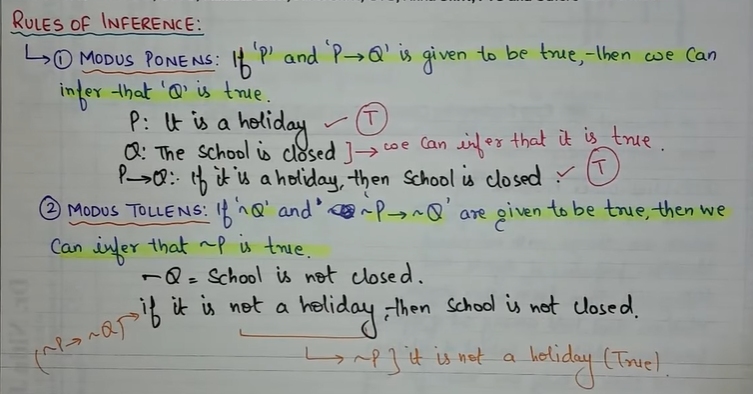 RULES OF INFERENCE:
↳ ① MODUS PONENS: If 'P' and 'P→Q' is given to be true, then we can
infer that 'Q' is true.
P: It is a holiday ✓ Ⓣ
Q: The school is closed ]→ we can infer that it is true.
P→Q: If it is a holiday, then School is closed. ✓ Ⓣ
② MODUS TOLLENS: If '~Q' and '~P→~Q' are given to be true, then we
can infer that ~P is true.
~Q = School is not closed.
if it is not a holiday, then School is not closed.
(~P→~Q)
↳ ~P ] it is not a holiday (True).